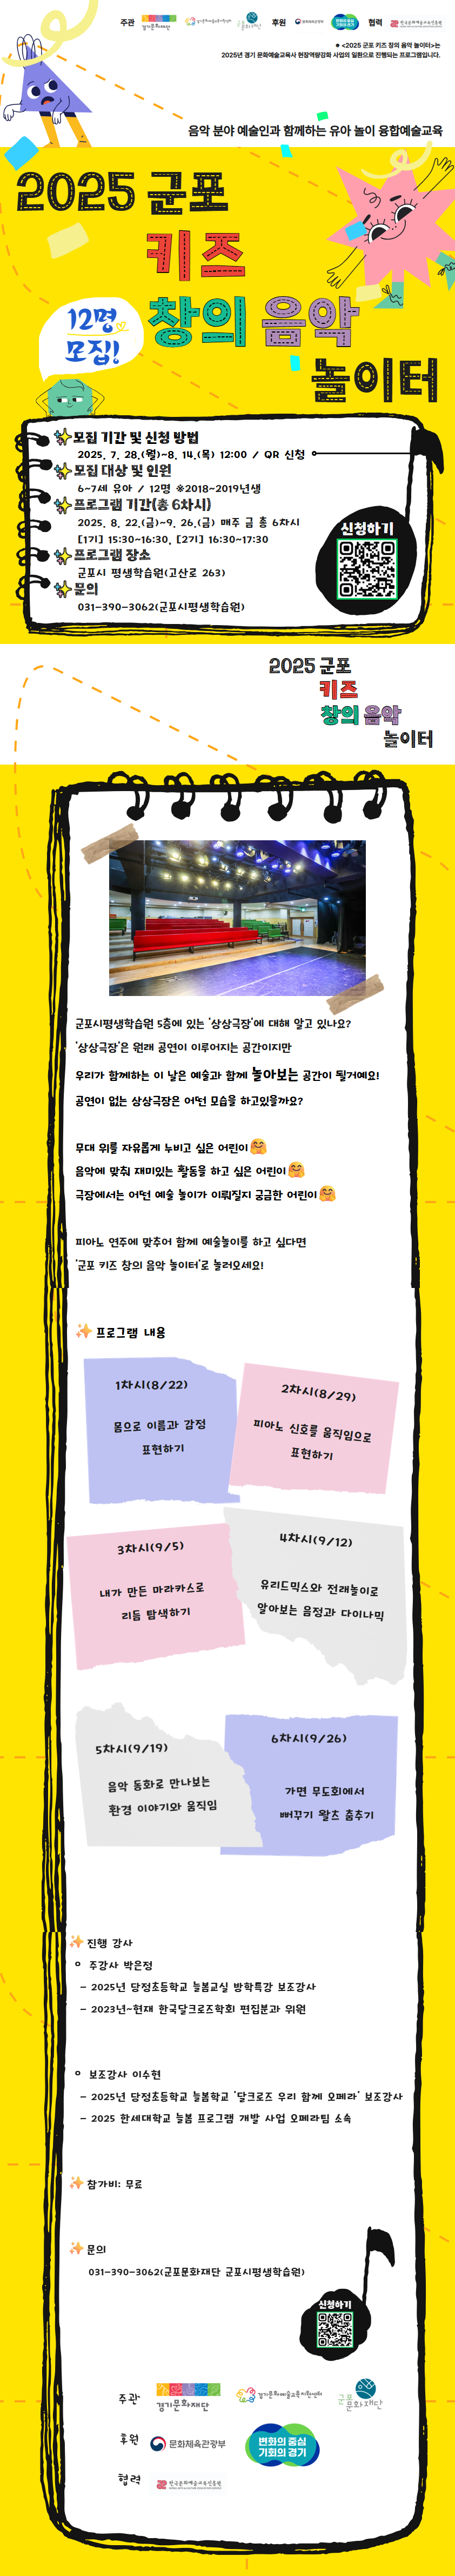 주관 경기문화재단 경기문화예술교육지원센터 군포문화재단 후원 문화체육관광부 변화의 중심 기회의 경기 협력 한국문화예술교육진흥원
● <2025 군포 키즈 창의 음악 놀이터>는
2025년 경기 문화예술교육사 현장역량강화 사업의 일환으로 진행되는 프로그램입니다.
음악 분야 예술인과 함께하는 유아 놀이 융합예술교육
2025 군포
키즈
창의 음악
놀이터
12명
모집!
모집 기간 및 신청 방법
2025. 7. 28.(월)~8. 14.(목) 12:00 / QR 신청
모집 대상 및 인원
6~7세 유아 / 12명 ※2018~2019년생
프로그램 기간(총 6차시)
2025. 8. 22.(금)~9. 26.(금) 매주 금 총 6차시
[1기] 15:30~16:30, [2기] 16:30~17:30
프로그램 장소
군포시 평생학습원(고산로 263)
문의
031-390-3062(군포시평생학습원)
신청하기
2025 군포
키즈
창의 음악
놀이터
군포시평생학습원 5층에 있는 '상상극장'에 대해 알고 있나요?
'상상극장'은 원래 공연이 이루어지는 공간이지만
우리가 함께하는 이 날은 예술과 함께 놀아보는 공간이 될거예요!
공연이 없는 상상극장은 어떤 모습을 하고있을까요?
무대 위를 자유롭게 누비고 싶은 어린이🤗
음악에 맞춰 재미있는 활동을 하고 싶은 어린이🤗
극장에서는 어떤 예술 놀이가 이뤄질지 궁금한 어린이🤗
피아노 연주에 맞추어 함께 예술놀이를 하고 싶다면
'군포 키즈 창의 음악 놀이터'로 놀러오세요!
✨ 프로그램 내용
1차시(8/22)
몸으로 이름과 감정
표현하기
2차시(8/29)
피아노 신호를 움직임으로
표현하기
3차시(9/5)
내가 만든 마라카스로
리듬 탐색하기
4차시(9/12)
유리드믹스와 전래놀이로
알아보는 음정과 다이나믹
5차시(9/19)
음악 동화로 만나보는
환경 이야기와 움직임
6차시(9/26)
가면 무도회에서
뻐꾸기 왈츠 춤추기
✨ 진행 강사
○ 주강사 박은정
- 2025년 당정초등학교 늘봄교실 방학특강 보조강사
- 2023년~현재 한국달크로즈학회 편집분과 위원
○ 보조강사 이수현
- 2025년 당정초등학교 늘봄학교 '달크로즈 우리 함께 오페라' 보조강사
- 2025 한세대학교 늘봄 프로그램 개발 사업 오페라팀 소속
✨ 참가비: 무료
✨ 문의
031-390-3062(군포문화재단 군포시평생학습원)
신청하기
주관 경기문화재단 경기문화예술교육지원센터 군포문화재단
후원 문화체육관광부 변화의 중심 기회의 경기
협력 한국문화예술교육진흥원